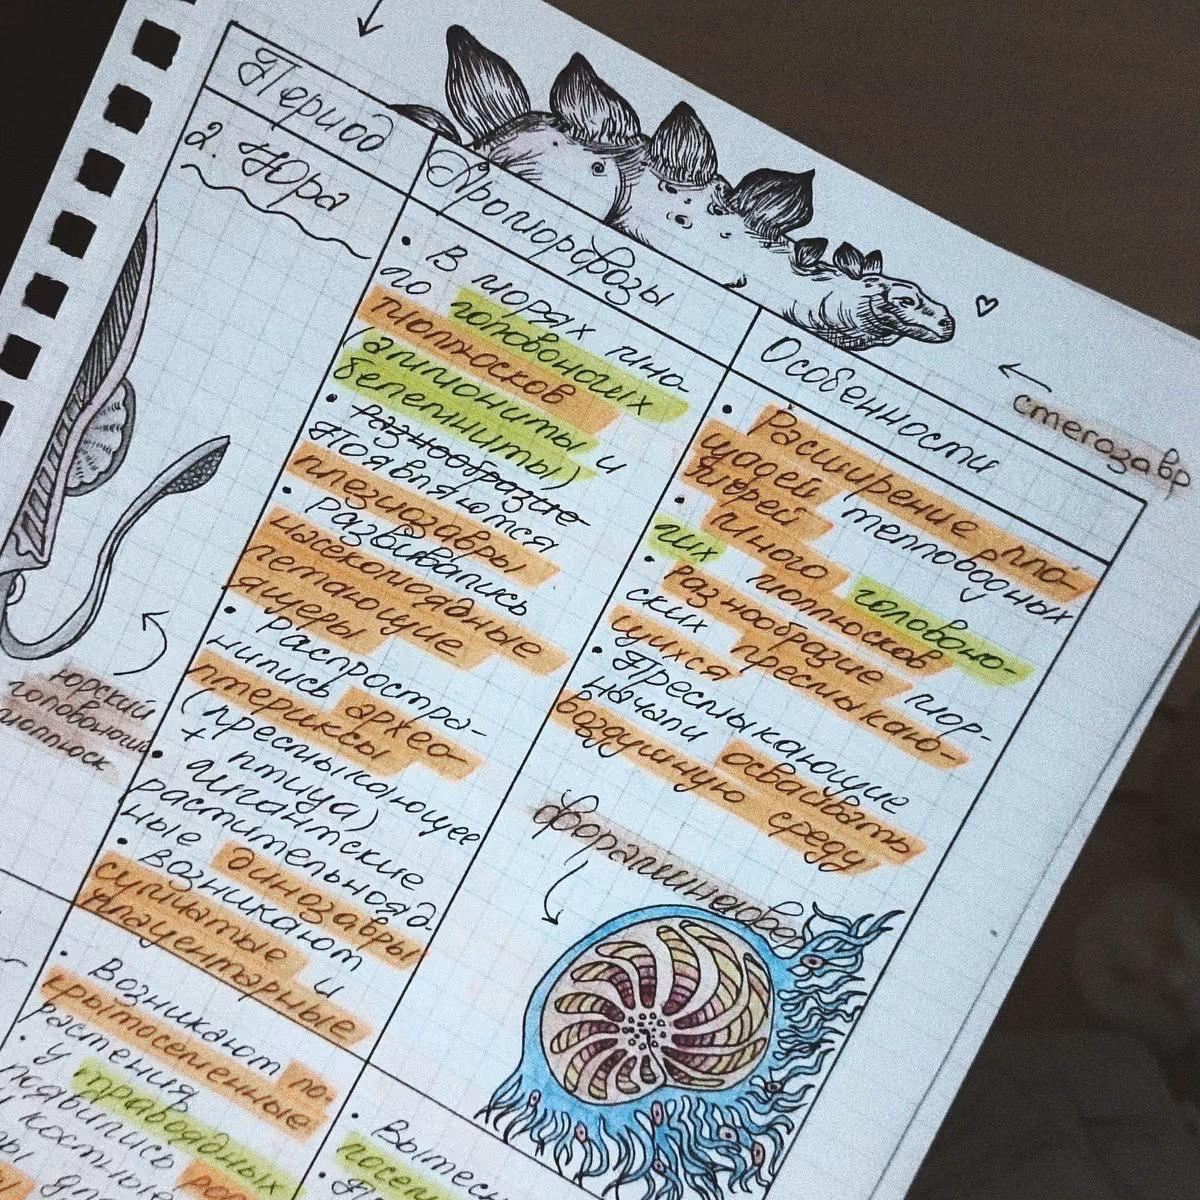 Период
2. Юра
Ароморфозы
• В морях мно-
го головоногих
моллюсков
(аммониты и
белемниты)
• разнообразие
Появляются
плезиозавры
• Развивались
насекомоядные
летающие
ящеры
• Распростра-
нились архео-
птериксы
(пресмыкающее
+ птица)
• Гигантские
растительнояд-
ные динозавры
• Возникают
сумчатые и
плацентарные
• Возникают по-
крытосеменные
растения
• У травоядных
появились рога
и костные
для
Особенности
• Расширение пло-
щадей тепловодных
морей
• Много головоно-
гих моллюсков
• Разнообразие мор-
ских пресмыкаю-
щихся
• Пресмыкающие
начали осваивать
воздушную среду
фораминифер
• Вытес
посел
стегозавр
юрский
головоногий
моллюск